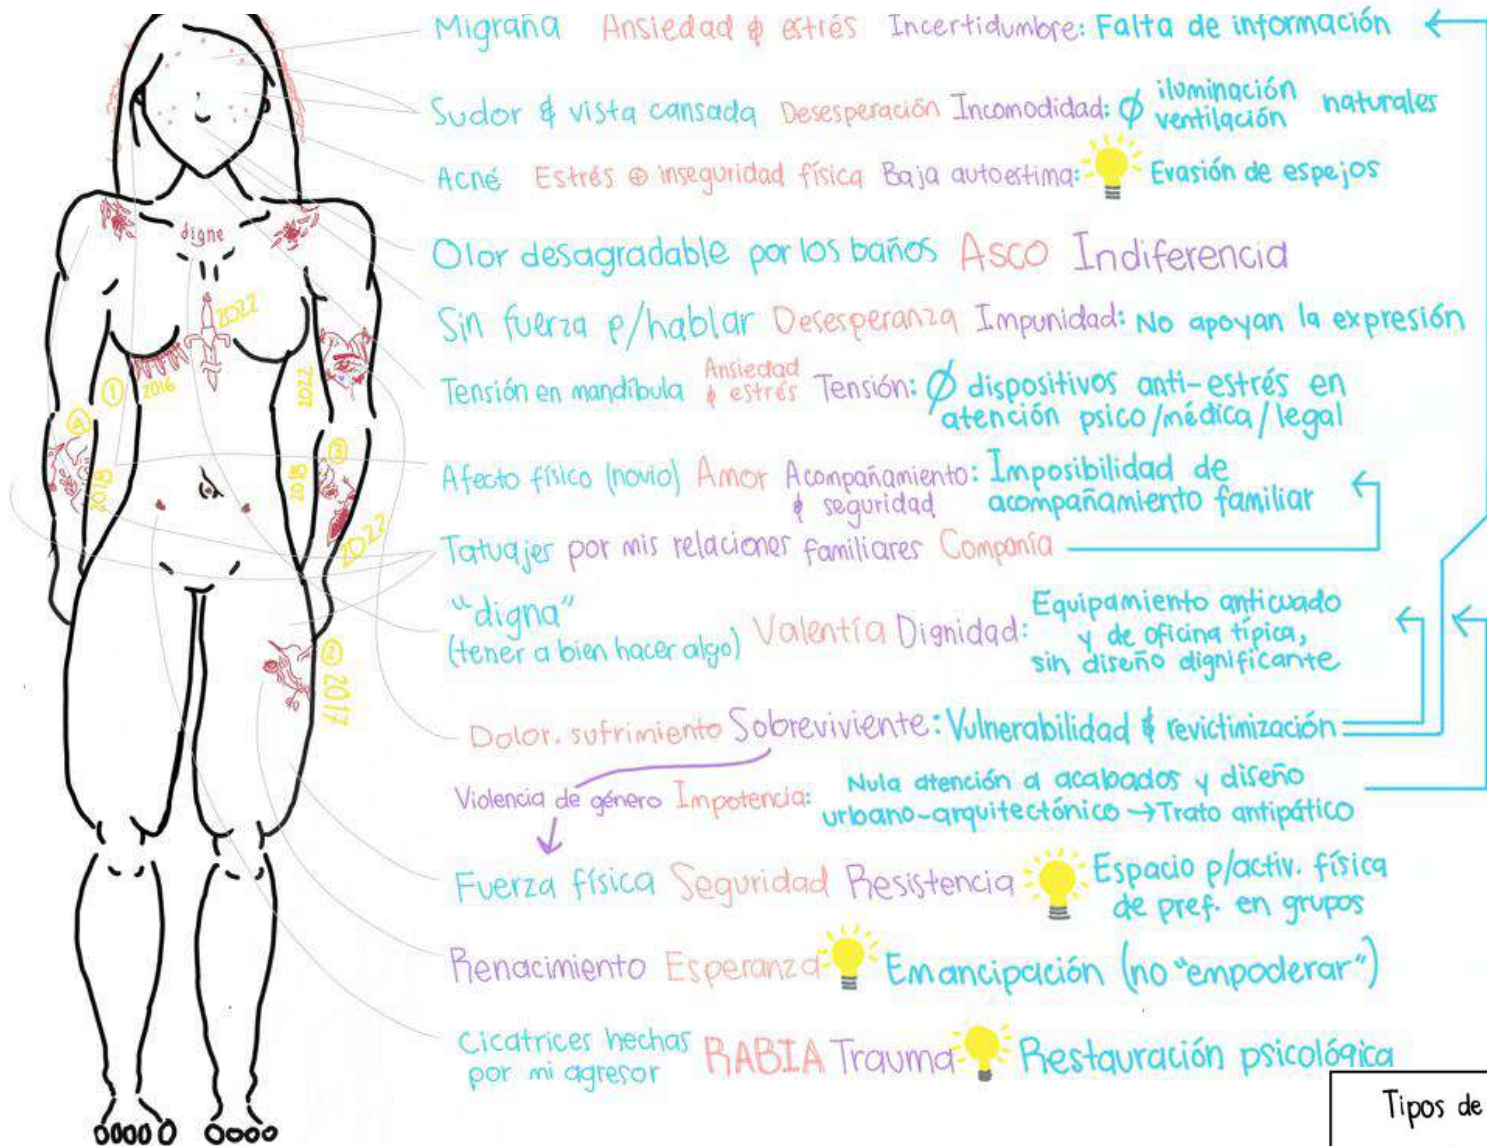 Migraña Ansiedad & estrés Incertidumbre: Falta de información
Sudor & vista cansada Desesperación Incomodidad: Ø iluminación ventilación naturales
Acné Estrés ⊕ inseguridad física Baja autoestima: Evasión de espejos
digne
Olor desagradable por los baños Asco Indiferencia
2022
Sin fuerza p/hablar Desesperanza Impunidad: No apoyan la expresión
① 2016
2022
Tensión en mandíbula Ansiedad & estrés Tensión: Ø dispositivos anti-estrés en
atención psico/médica/legal
2018
2018 ③
2022
Afecto físico (novio) Amor Acompañamiento & seguridad: Imposibilidad de
acompañamiento familiar
Tatuajes por mis relaciones familiares Companía
"digna"
(tener a bien hacer algo) Valentía Dignidad: Equipamiento anticuado
y de oficina típica,
sin diseño dignificante
② 2017
Dolor. sufrimiento Sobreviviente: Vulnerabilidad & revictimización
Violencia de género Impotencia: Nula atención a acabados y diseño
urbano-arquitectónico → Trato antipático
Fuerza física Seguridad Resistencia Espacio p/activ. física
de pref. en grupos
Renacimiento Esperanza Emancipación (no "empoderar")
Cicatrices hechas
por mi agresor RABIA Trauma Restauración psicológica
Tipos de